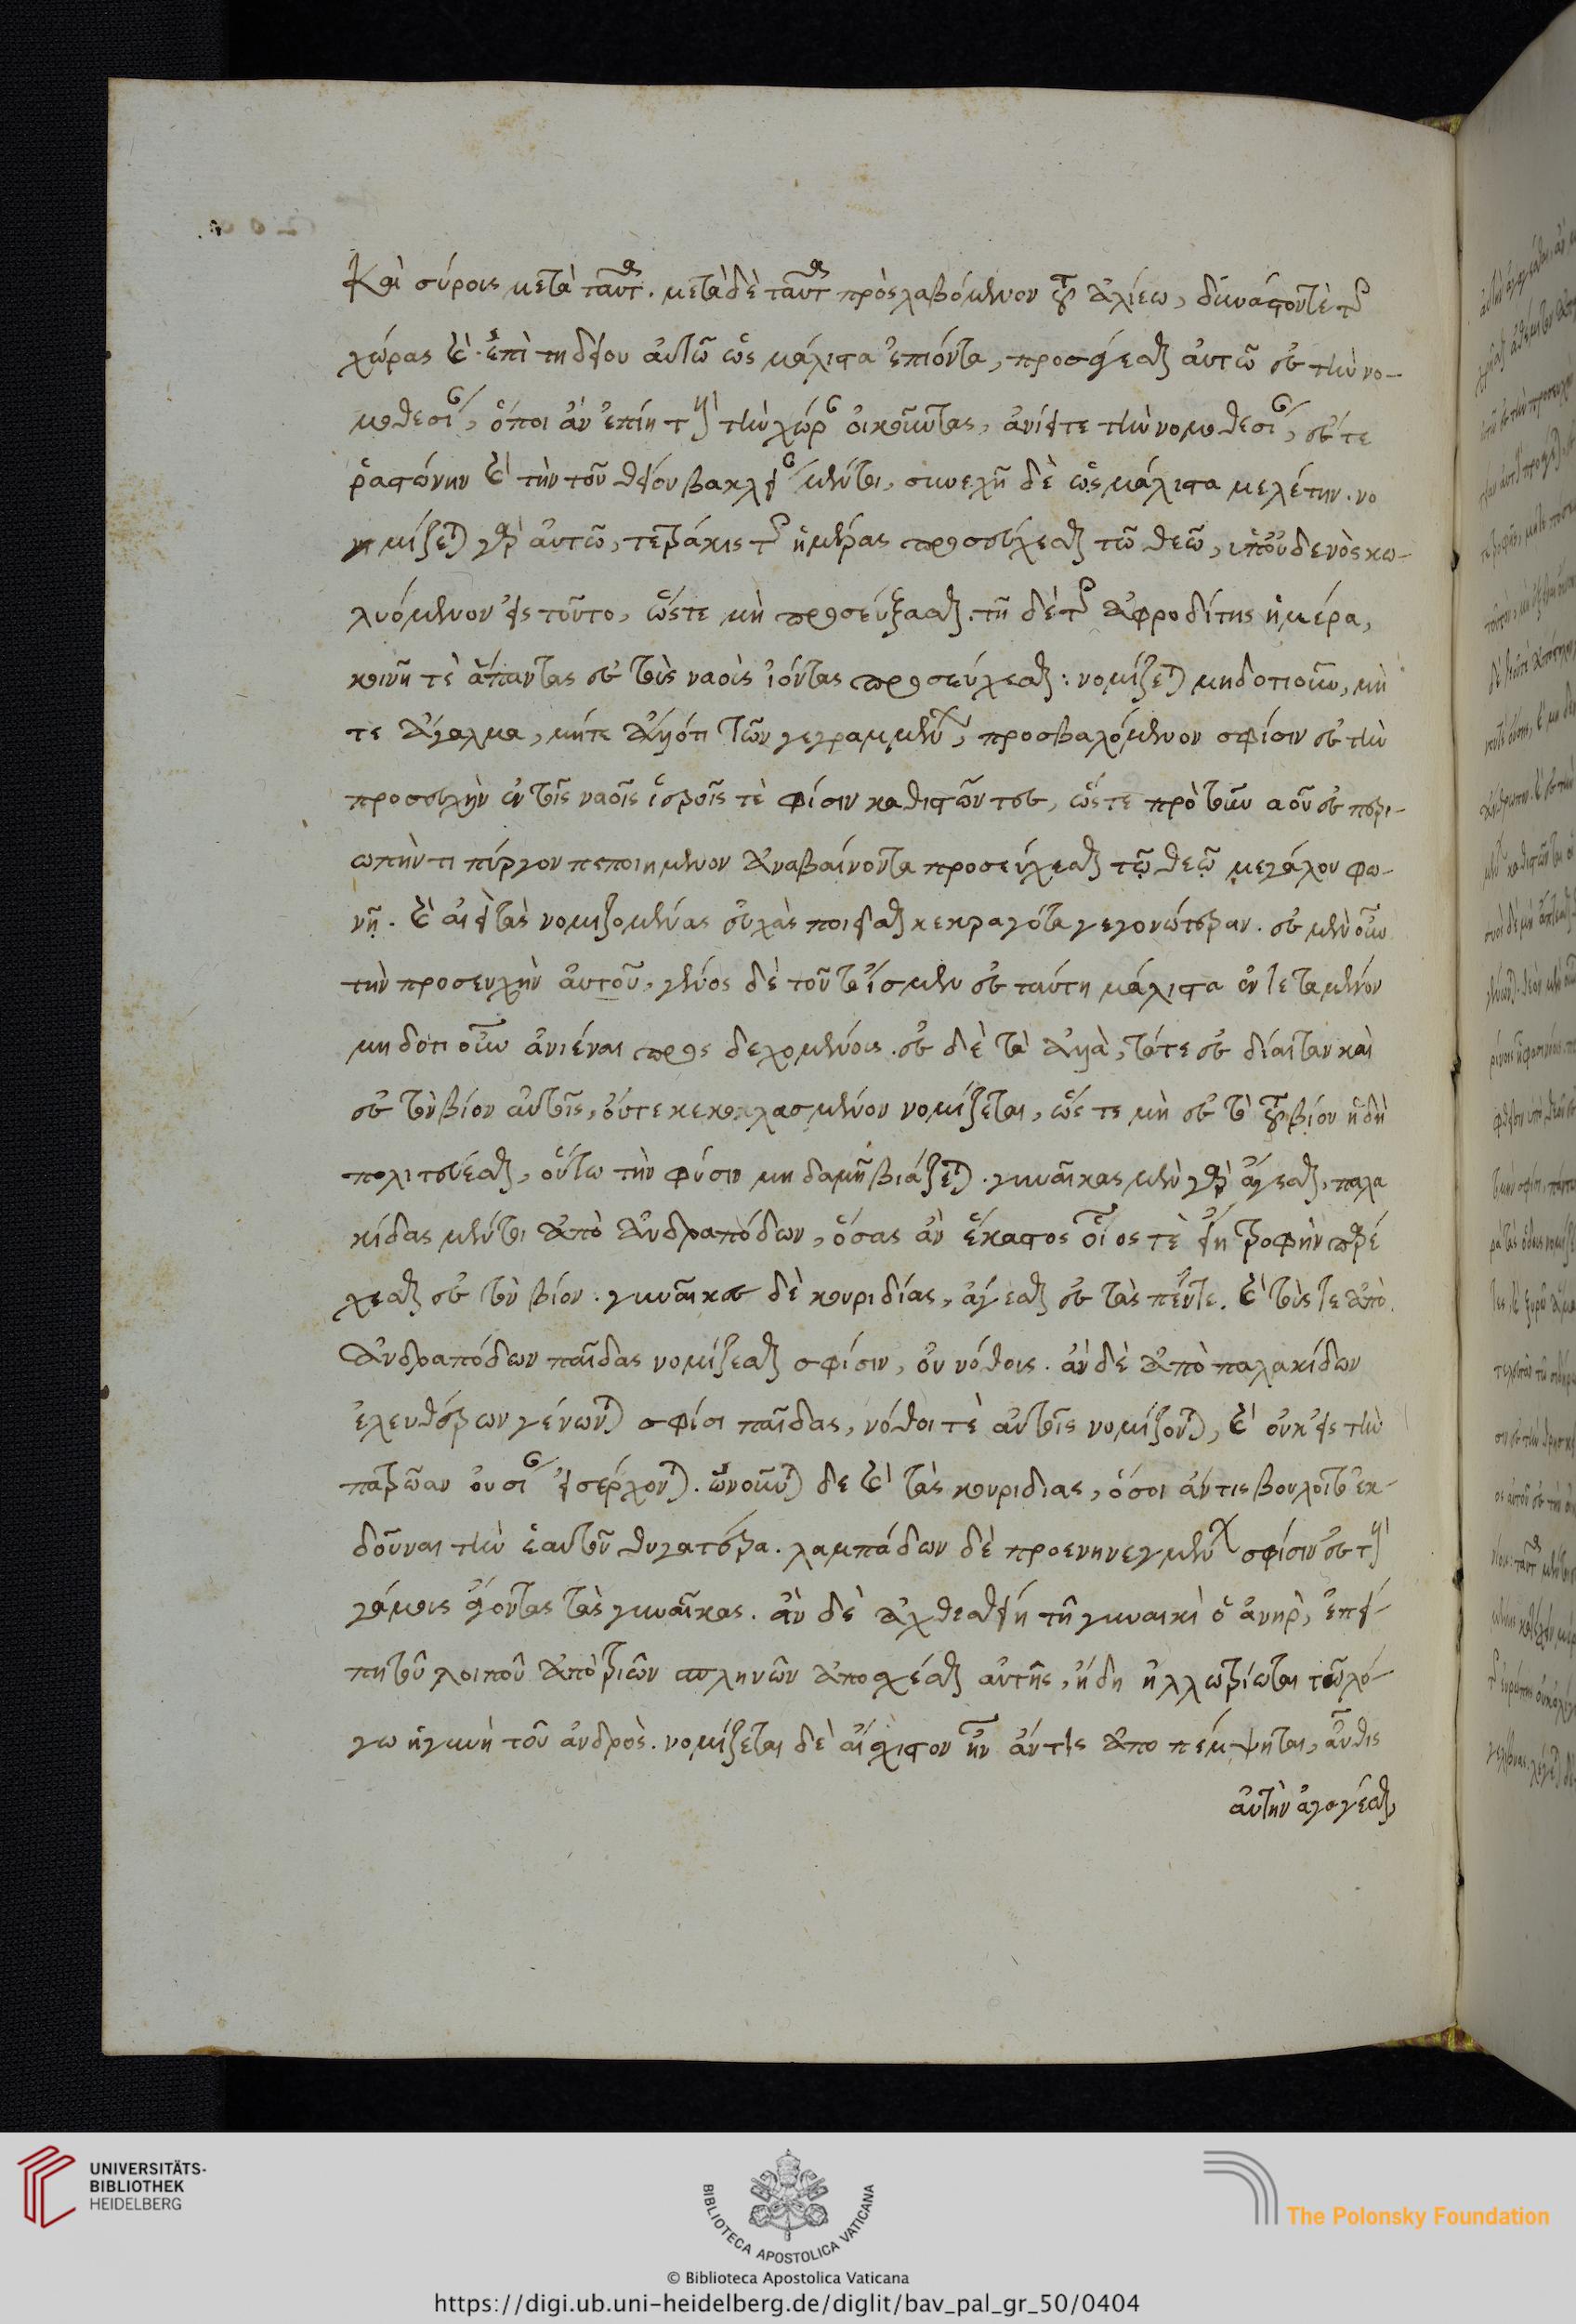 Καὶ σύροις μετὰ ταῦτα. μετὰ δὲ ταῦτα πρὸςλαβόμενον τὸν ἀλίεω, δυνάστοντὲ τῆς
χώρας καὶ ἐπιτηδείου αὐτῶ ὡς μάλιστα ἐπιόντα, προσάγεσθαι αὐτῶ ἐς τὴν νο-
μοθεσίαν, ὅποι ἂν ἐπίῃ τοὺς τὴν χώραν οἰκοῦντας, ἀνίει τε τὴν νομοθεσίαν, ἔς τε
ῥαστώνην καὶ τὴν τοῦ θείου βακχείαν μέντοι, συνεχῆ δὲ ὡς μάλιστα μελέτην. νο
μίζεται γὰρ αὐτῶ, τετράκις τῆς ἡμέρας προσεύχεσθαι τῶ θεῶ, ὑπ' οὐδενὸς κω-
λυόμενον εἰς τοῦτο, ὥστε μὴ προσεύξασθαι. τῇ δὲ τῆς ἀφροδίτης ἡμέρα,
κοινῇ τὲ ἅπαντας ἐς τοὺς ναοὺς ἰόντας προσεύχεσθαι: νομίζεται μηδοτιοῦν, μή
τε ἄγαλμα, μήτε ἄλλό τι τῶν γεγραμμένων, προσβαλόμενον σφίσιν ἐς τὴν
προσευχὴν ἐν τοῖς ναοῖς ἱεροῖς τὲ φίσιν καθιστῶντες, ὥστε πρὸ τοῦν αοῦ ἐς περι-
ωπήν τι πύργον πεποιημένον ἀναβαίνοντα προσεύχεσθαι τῷ θεῷ μεγάλου φω-
νῇ. καὶ ἀεὶ τὰς νομιζομένας εὐχὰς ποιεῖσθαι κεκραγότα γεγονώτεραν. ἐς μὲν οὖν
τὴν προσευχὴν αὐτοῦ, γένος δὲ τοῦτο ἴσμεν ἐς ταύτη μάλιστα ἐντεταμένον
μηδοτιοῦν ἀνιέναι προς δεχομένοις. ἐς δὲ τὰ ἀλλὰ, τάτε ἐς δίαιταν καὶ
ἐς τὸν βίον αὐτοῖς, οὔτε κεκολασμένον νομίζεται, ὥστε μὴ ἐς τὸ τὸν βίον ἡδὴ
πολιτεύεσθαι, οὕτω τὴν φύσιν μηδαμῆ βιάζεται. γυναῖκας μὲν γὰρ ἄγεσθαι, παλα
κίδας μέντοι ἀπὸ ἀνδραπόδων, ὅσας ἂν ἕκαστος οἷος τὲ εἴη τροφὴν παρέ
χεσθαι ἐς τὸν βίον. γυναῖκας δὲ κουριδίας, ἀγεσθαι ἐς τὰς πέντε. καὶ τοὺς τε ἀπὸ
ἀνδραπόδων παῖδας νομίζεσθαι σφίσιν, οὐ νόθοις. ἀν δὲ ἀπὸ παλακίδων
ἐλευθέρων γένωνται σφίσι παῖδας, νόθοι τὲ αὐτοῖς νομίζονται, καὶ οὐκ εἰς τὴν
πατρῶαν οὐσίαν εἰσέρχονται. ὠνοῦνται δε καὶ τὰς κουριδιας, ὅσοι ἄν τις βουλοιτο ἐκ-
δοῦναι τὴν ἑαυτοῦ θυγατέρα. λαμπάδων δὲ προενηνεγμένων σφίσιν ἐς τοὺς
γάμοις ἄγοντας τὰς γυναῖκας. ἂν δὲ ἀχθεσθείη τῇ γυναικὶ ὁ ἀνηρ, ἐπεί-
πῃ τοῦ λοιποῦ ἀπὸ τριῶν σπληνῶν ἀποσχέσθαι αὐτῆς, ἤδη ἠλλωτρίωται τῶ λό-
γω ἡ γυνὴ τοῦ ἀνδρὸς. νομίζεται δὲ αἴσχιστον ἢν ἄν τις ἀπο πέμψηται, αὖθις
αὐτὴν ἀγαγέσθαι,
UNIVERSITÄTS-
BIBLIOTHEK
HEIDELBERG
BIBLIOTECA APOSTOLICA VATICANA
The Polonsky Foundation
© Biblioteca Apostolica Vaticana
https://digi.ub.uni-heidelberg.de/diglit/bav_pal_gr_50/0404